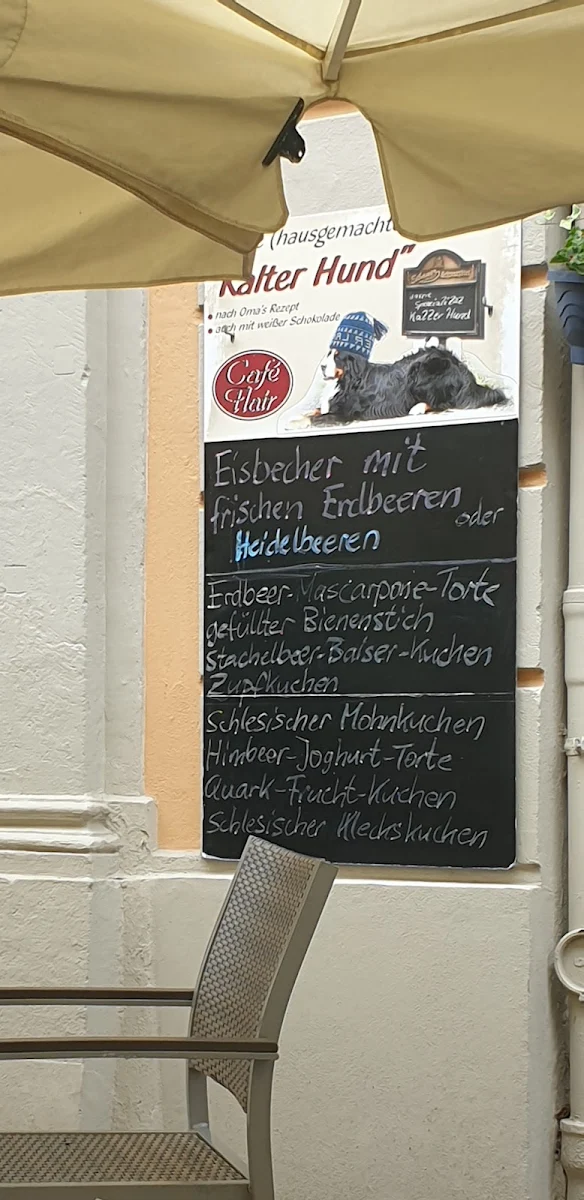 (hausgemacht
Kalter Hund"
• nach Oma's Rezept
• auch mit weißer Schokolade
Café
Flair
Spezialität
Kalter Hund
Eisbecher mit
frischen Erdbeeren
oder
Heidelbeeren
Erdbeer-Mascarpone-Torte
gefüllter Bienenstich
Stachelbeer-Baiser-Kuchen
Zupfkuchen
Schlesischer Mohnkuchen
Himbeer-Joghurt-Torte
Quark-Frucht-Kuchen
Schlesischer Kleckskuchen